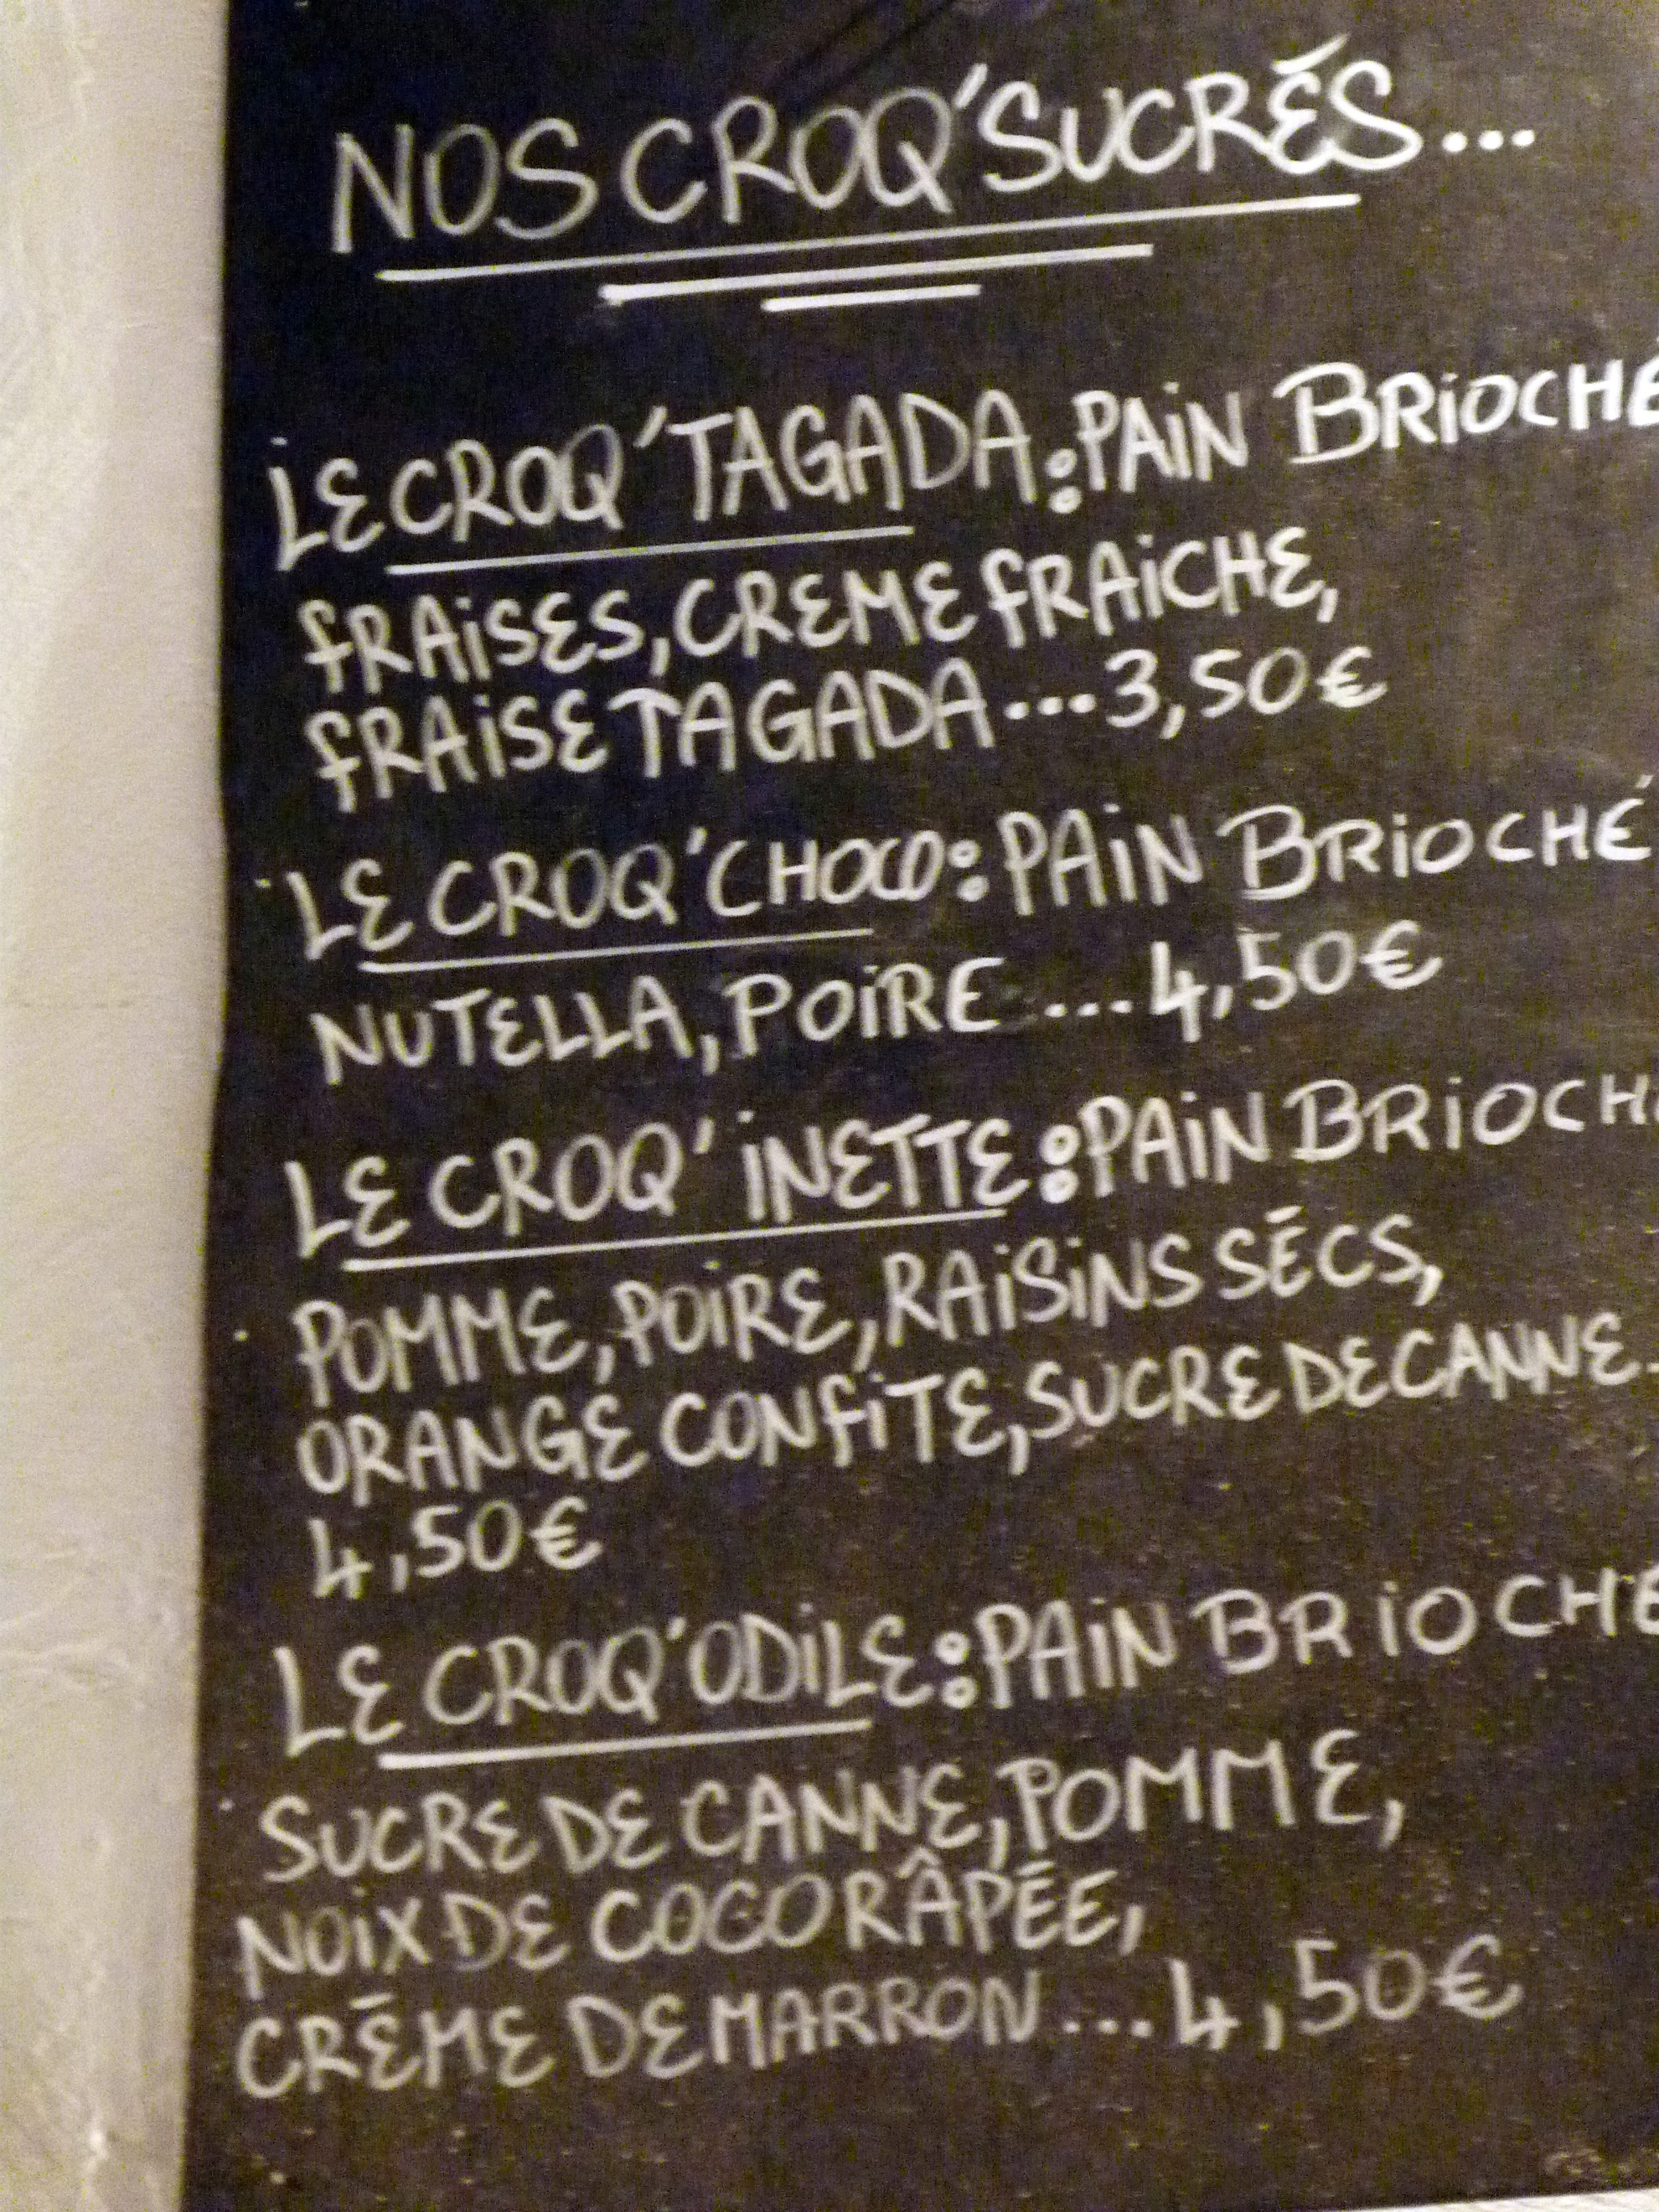 NOS CROQ'SUCRÉS...
LE CROQ'TAGADA: PAIN BRIOCHÉ
FRAISES, CREME FRAICHE,
FRAISE TAGADA...3,50€
LE CROQ'CHOCO: PAIN BRIOCHÉ
NUTELLA, POIRE ...4,50€
LE CROQ'INETTE: PAIN BRIOCHÉ
POMME, POIRE, RAISINS SÉCS,
ORANGE CONFITE, SUCRE DE CANNE.
4,50€
LE CROQ'ODILE: PAIN BRIOCHÉ
SUCRE DE CANNE, POMME,
NOIX DE COCO RÂPÉE,
CRÉME DE MARRON...4,50€